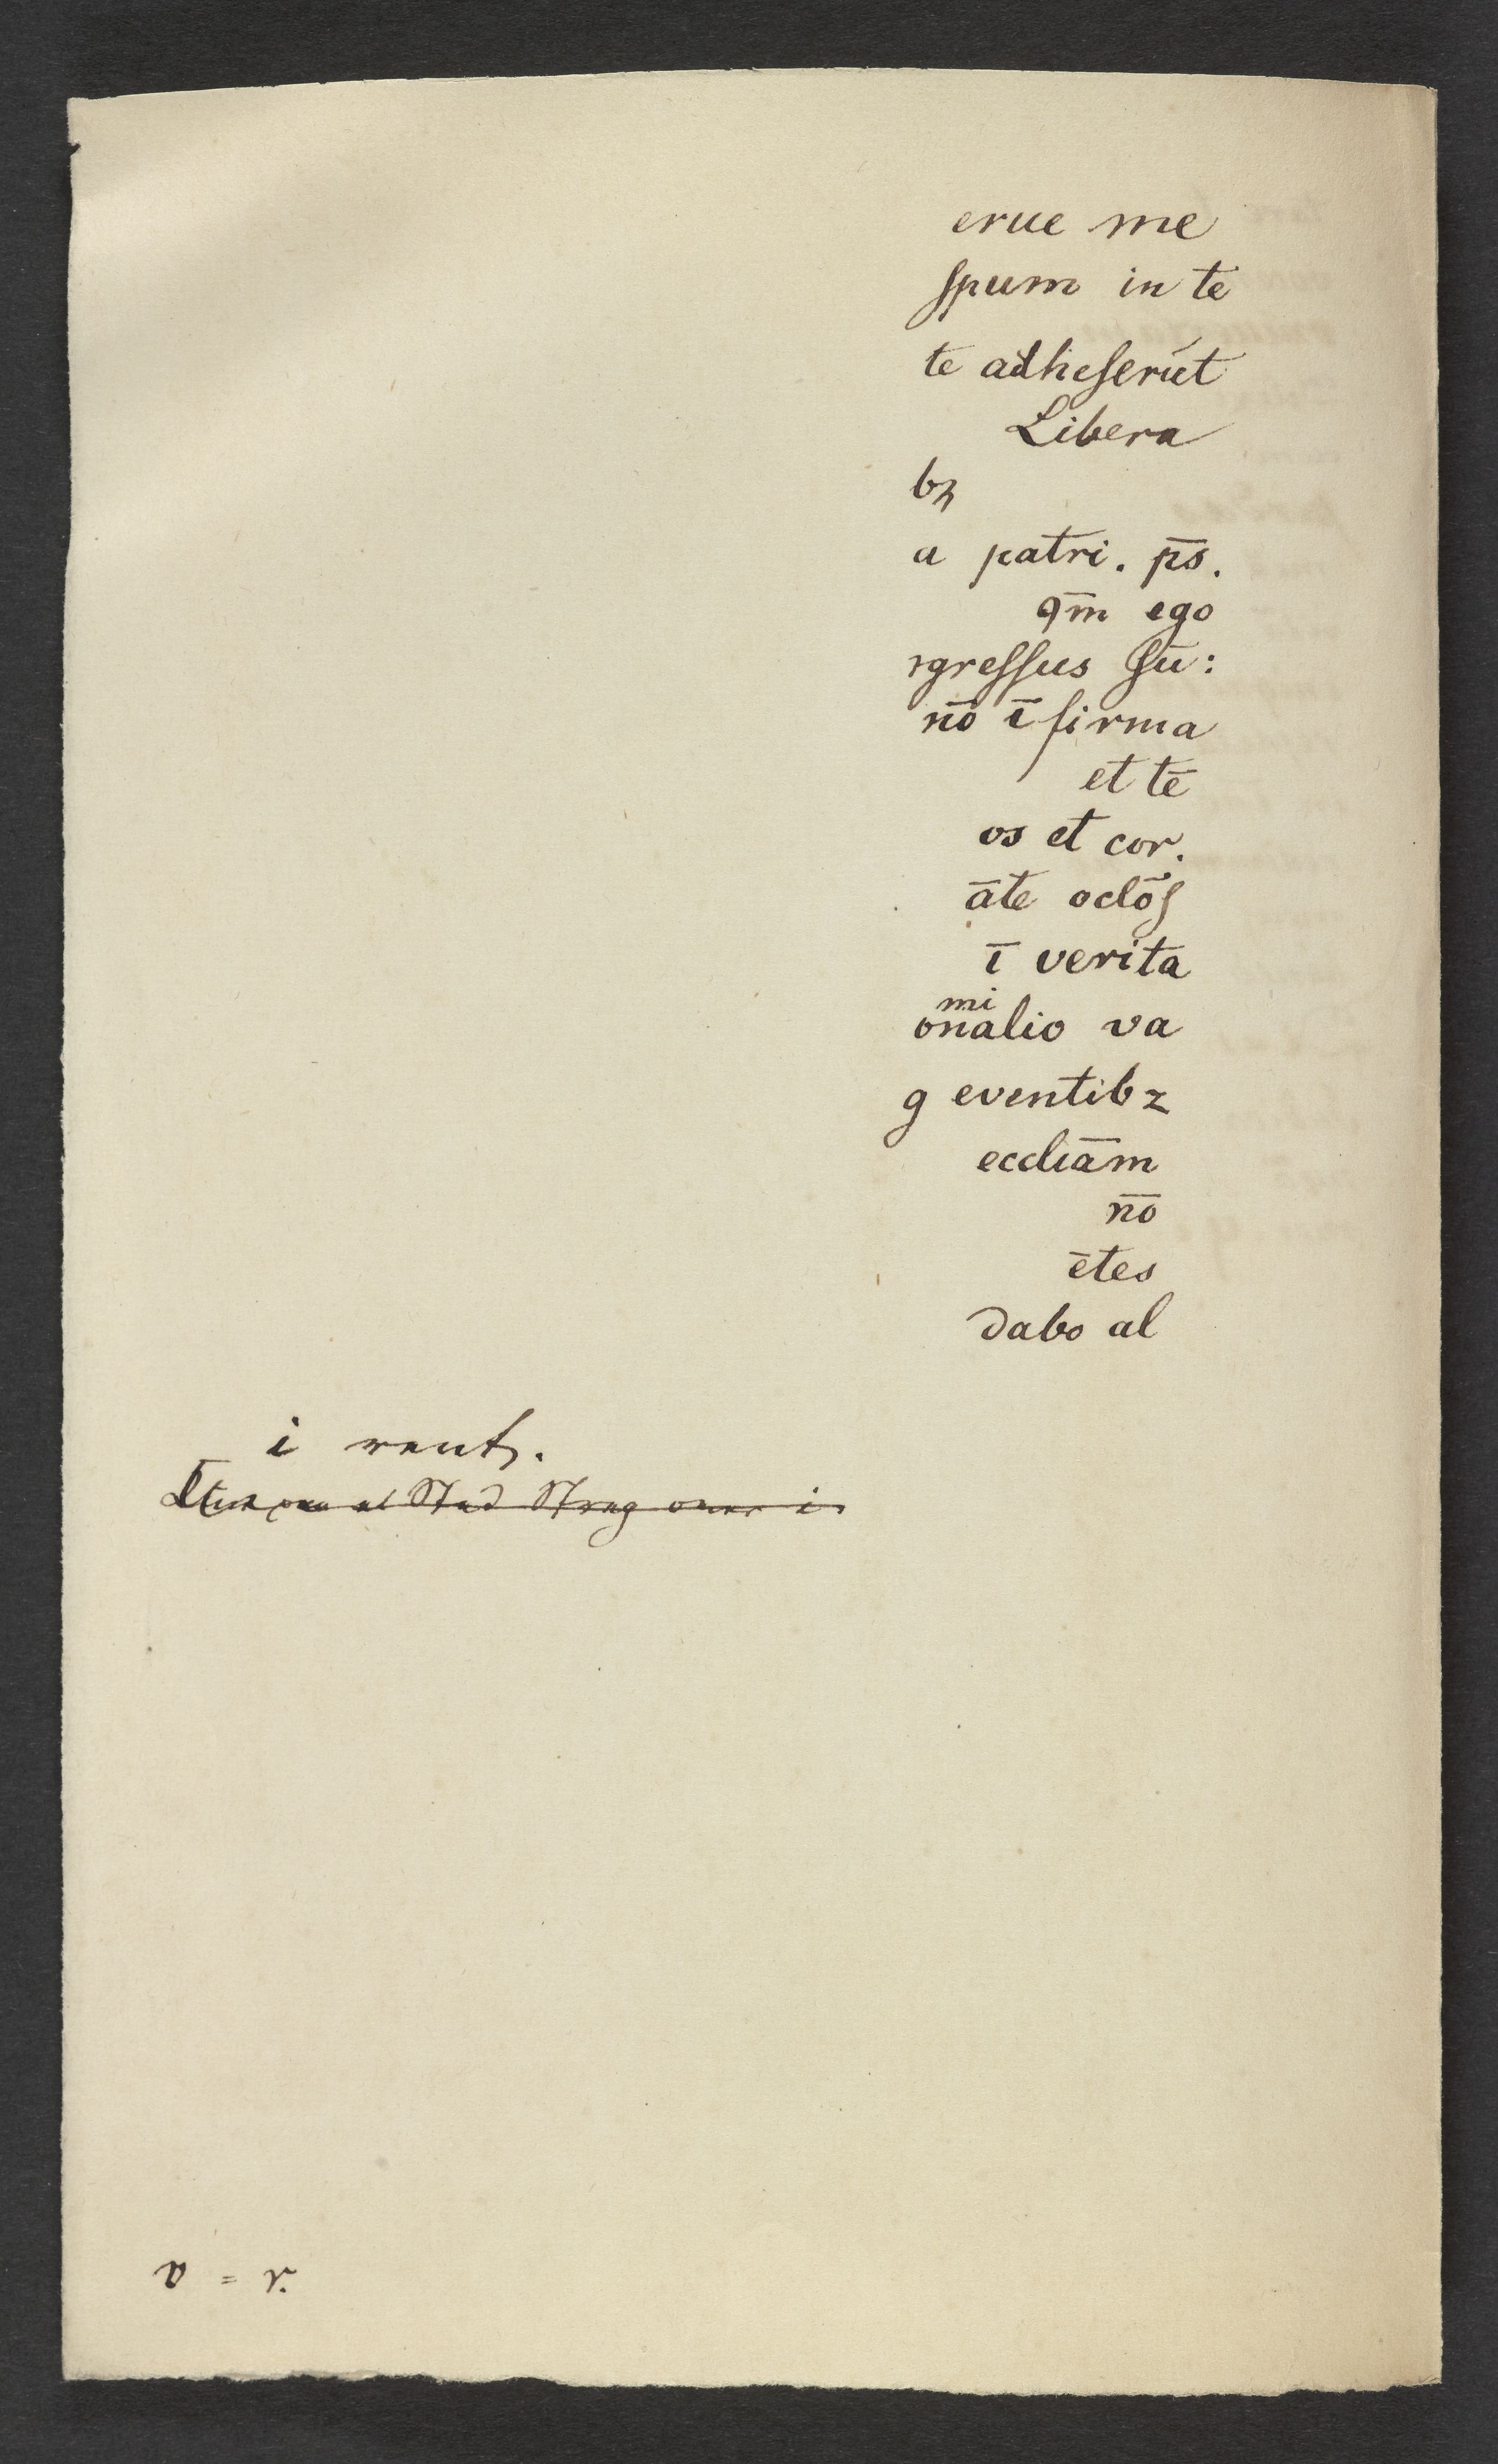 erue me
ſpum in te
te adheſerūt
Libera
bꝫ
a patri. p̄s.
qm̄ ego
ıgreſſus ſū:
nō ī firma
et tē
os et cor.
āte oclōſ
ī verita
mi
onalio va
g eventibz
eccliām
nō
ētes
dabo al
i
Stad i
v = r.